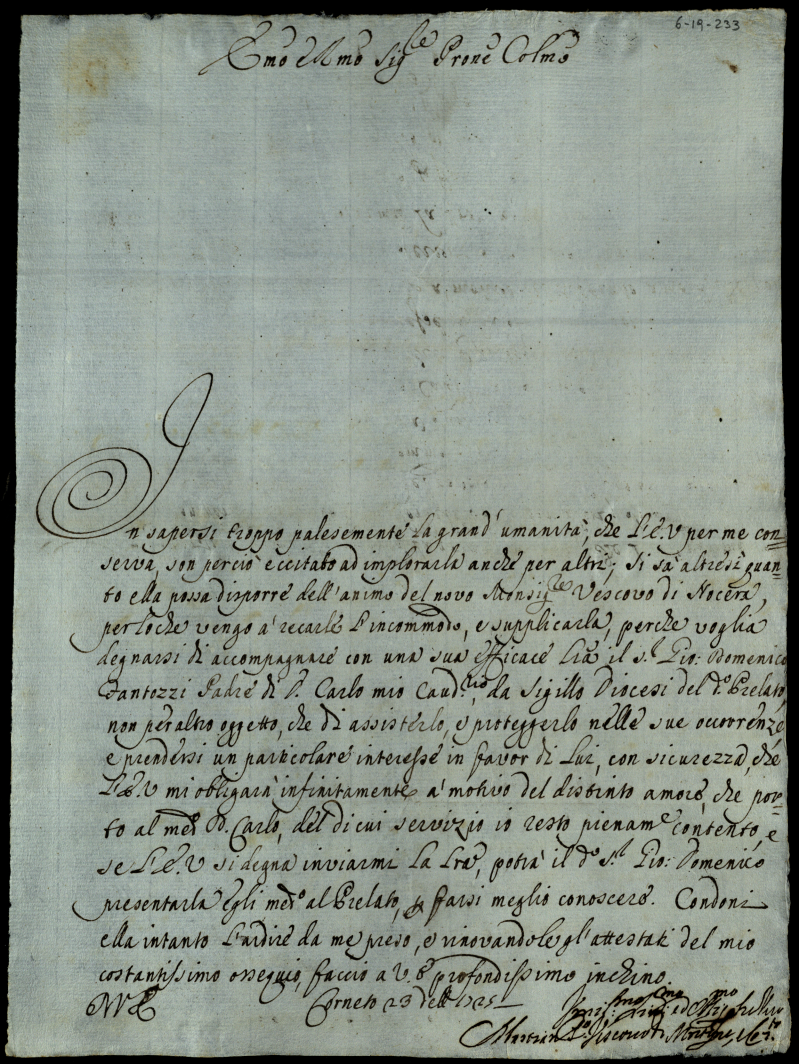 6-19-233
Emo e Rmo Sig.re Prone Colmo
In sapersi troppo palesemente la grand' umanità, che L'E.V per me con=
serva, son perciò eccitato ad implorarla anche per altri; Si sà altresì quan=
to ella possa disporre dell'animo del novo Monsig.re Vescovo di Nocera,
perloche vengo à recarle l'incommodo, e supplicarla, perche voglia
degnarsi di accompagnare con una sua efficace Lrã il s.r Gio: Domenico
Fantozzi Padre di D. Carlo mio Caud.rio, da Sigillo Diocesi del d.o Prelato,
non per altro oggetto, che di assisterlo, e proteggerlo nelle sue occorrenze
e prendersi un particolare interesse in favor di Lui, con sicurezza, che
L'E.V mi obligarà infinitamente à motivo del distinto amore, che por=
to al med.o D. Carlo, del di cui servizio io resto pienam.e contento, e
se L'E.V si degna inviarmi la Lra, potrà il d.o s.r Gio: Domenico
presentarla egli med.o al Prelato, e farsi meglio conoscere. Condoni
ella intanto l'ardire da me preso, e rinovandole gl'attestati del mio
costantissimo ossequio, faccio a V.E profondissimo inchino.
Corneto 23 dell 1725